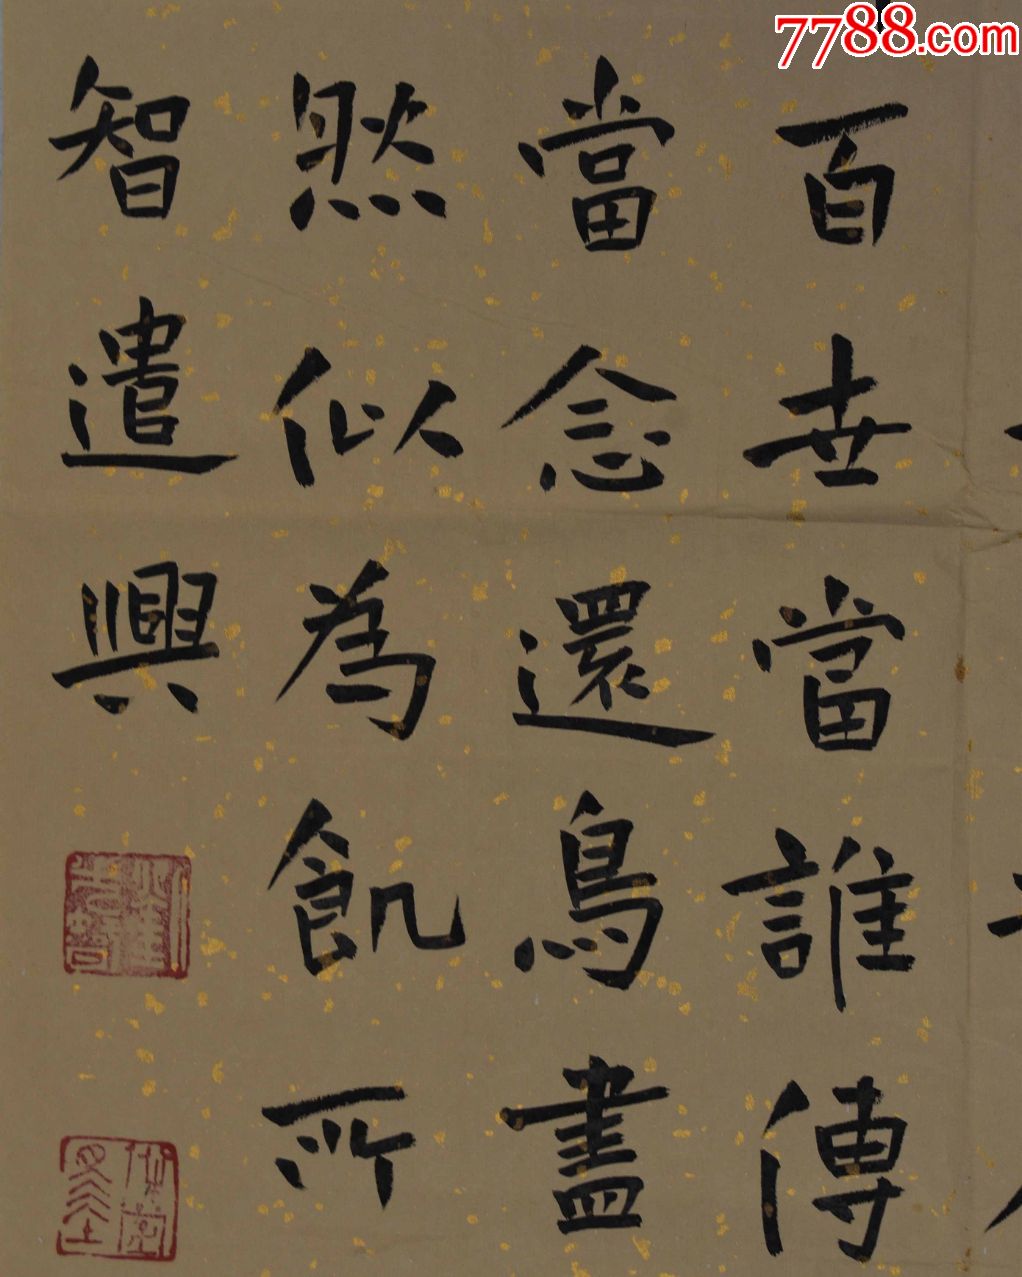 7788.com
百世當誰傳
當念還鳥盡
然似為飢所
智遣興